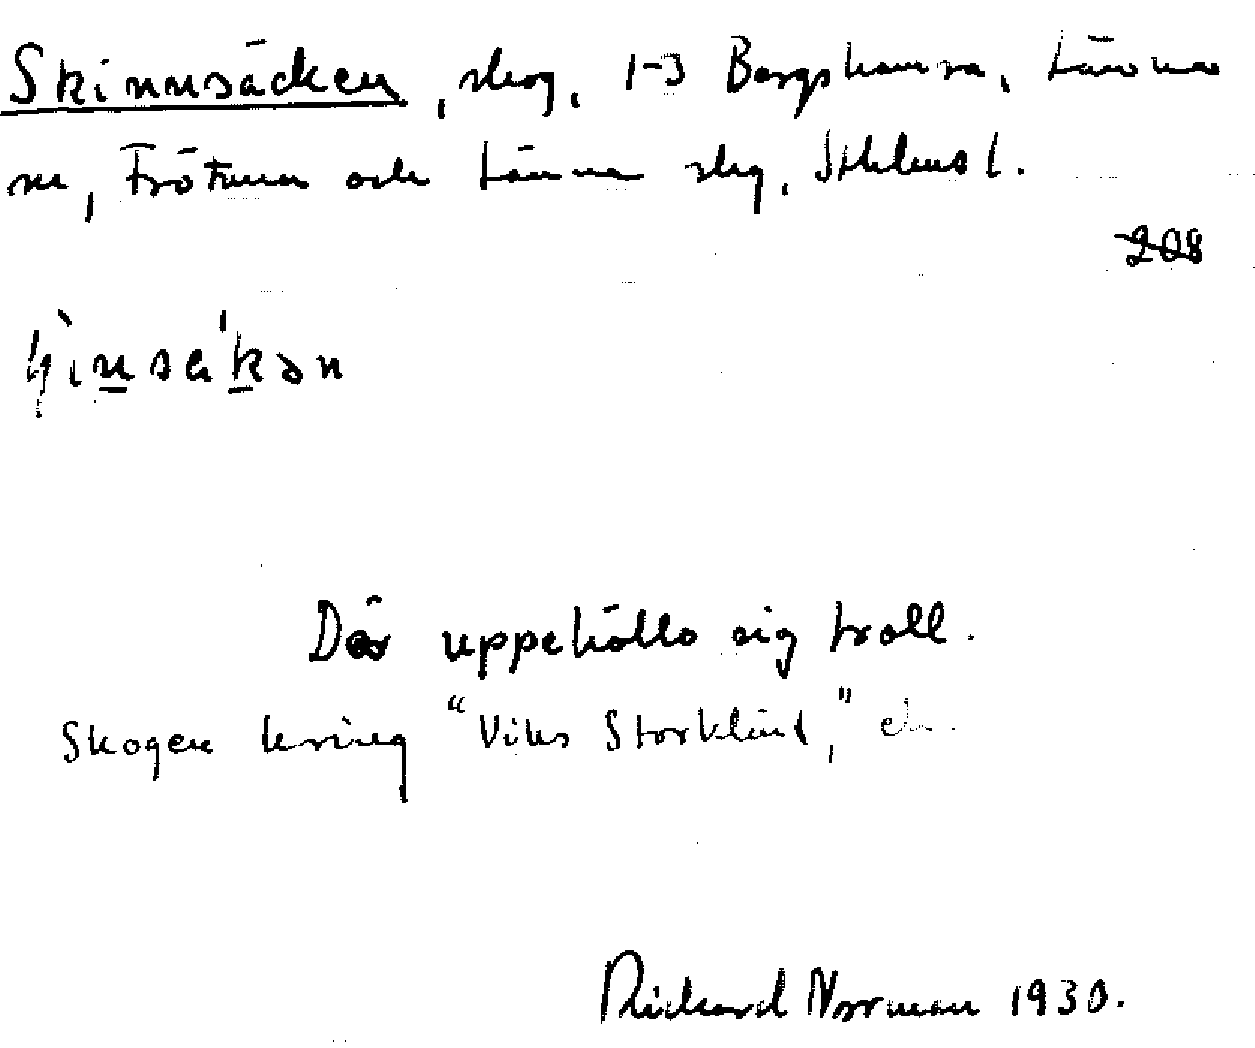 Skinnsäcken, skog, 1-3 Bergshamra, Länna
sn, Frötuna och Länna slg, Sthlms l.
208
Där uppehöllo sig troll.
Skogen kring "Viks Storklint,"
Rickard Norrman 1930.